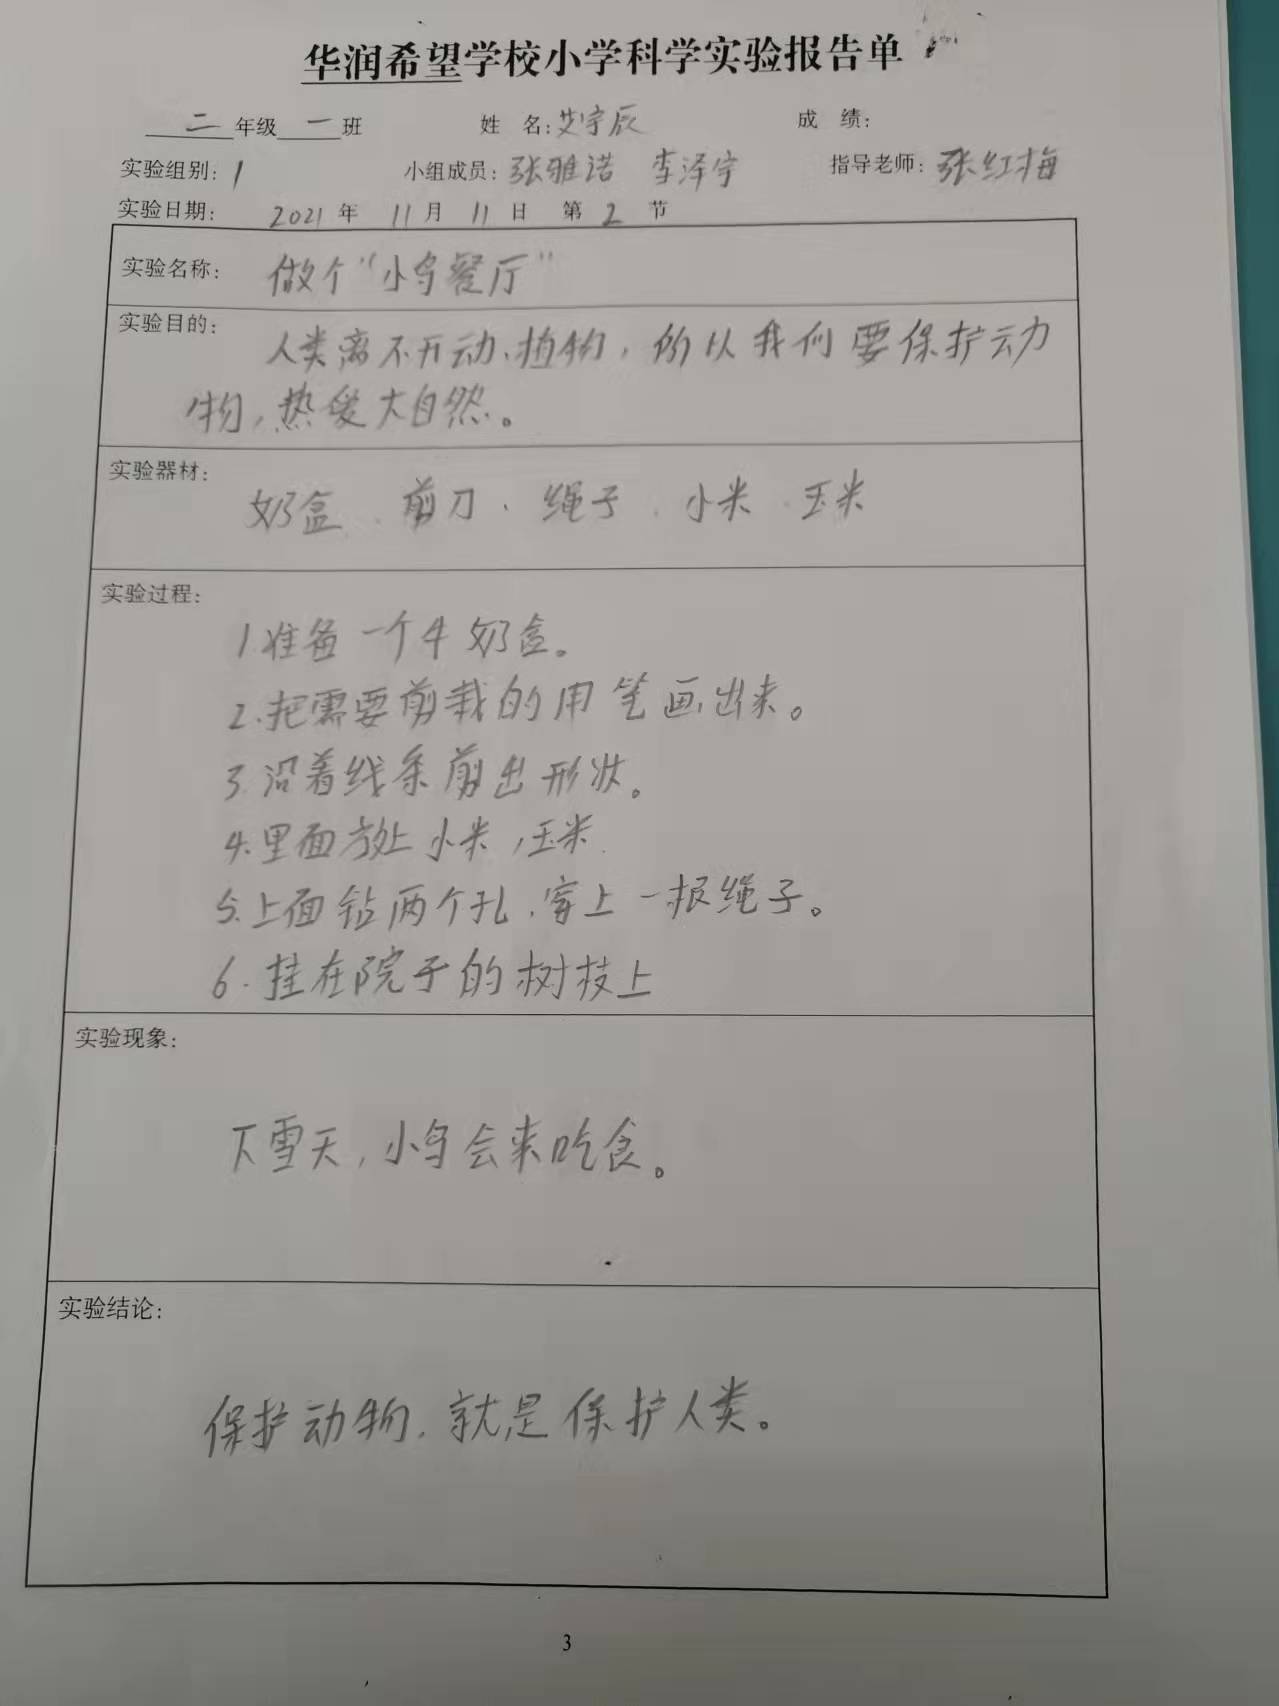 华润希望学校小学科学实验报告单
二年级一班 姓 名:艾宇辰 成 绩:
实验组别:1 小组成员:张雅诺 李泽宇 指导老师:张红梅
实验日期: 2021年 11月 11日 第2节
实验名称: 做个“小鸟餐厅”
实验目的: 人类离不开动、植物,所以我们要保护动
物,热爱大自然。
实验器材:
奶盒、剪刀、绳子、小米、玉米
实验过程:
1.准备一个牛奶盒。
2.把需要剪裁的用笔画出来。
3.沿着线条剪出形状。
4.里面放上小米,玉米
5.上面钻两个孔,穿上一根绳子。
6.挂在院子的树枝上
实验现象:
下雪天,小鸟会来吃食。
实验结论:
保护动物,就是保护人类。
3